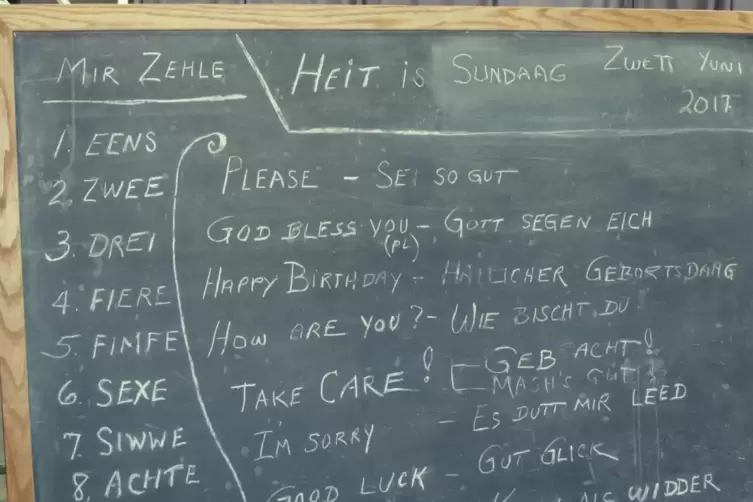 MIR ZEHLE
HEIT is SUNDAAG ZWETT YUNI
2017
1. EENS
2. ZWEE
3. DREI
4. FIERE
5. FIMFE
6. SEXE
7. SIWWE
8. ACHTE
PLEASE - SEI SO GUT
GOD BLESS YOU - GOTT SEGEN EICH
(PL)
HAPPY BIRTHDAY - GEBORTSDAAG
HOW ARE YOU? - WIE BISCHT DU
TAKE CARE! GEB ACHT!
MASH'S GUT
I'M SORRY - ES DUTT MIR LEED
GOOD LUCK - GUT GLICK
WIDDER